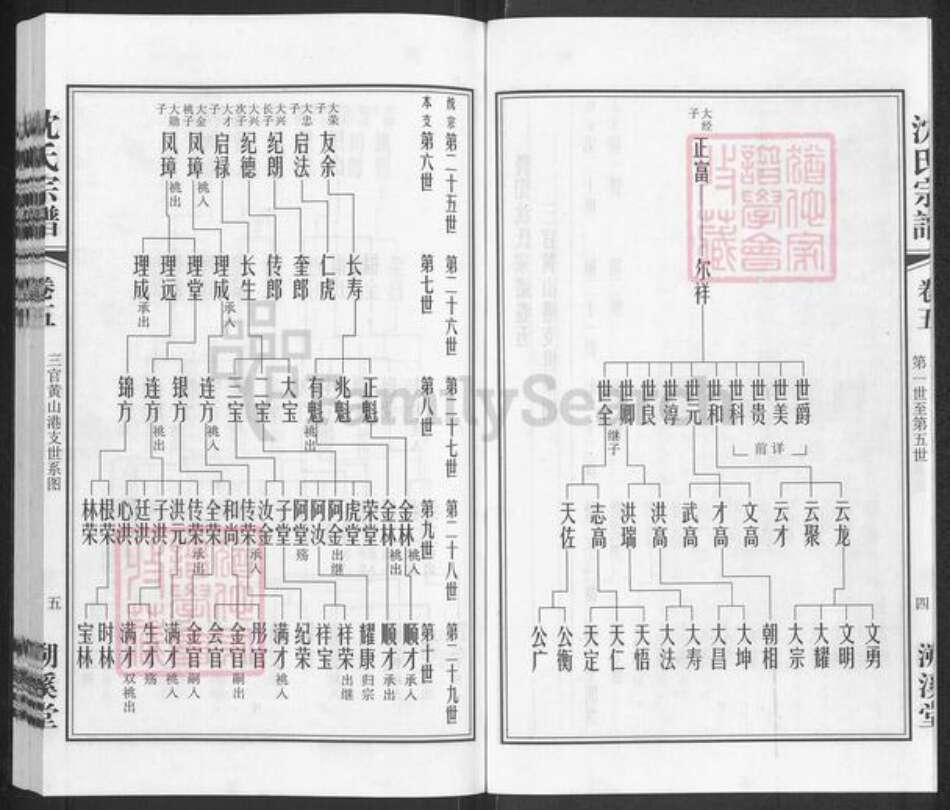 沈氏宗谱
卷五
第一世至第五世
四
溯溪堂
大经子
正富
尔祥
世爵
世美
世贵
世科
世和
世元
世淳
世良
世卿
世全
继子
详前
云龙
云聚
云才
文高
才高
武高
洪高
洪瑞
志高
天佐
文勇
文明
大耀
大宗
朝相
大坤
大昌
大寿
大法
天悟
天仁
天定
公衡
公广
统宗第二十五世
本支第六世
大荣子
友余
大忠子
启法
大兴长子
纪朗
大兴次子
纪德
大才子
启禄
大金桃子
凤璋
桃入
大勋子
凤璋
桃出
第二十六世
第七世
长寿
仁虎
奎郎
传郎
长生
理成
承入
理堂
理远
理成
承出
第二十七世
第八世
正魁
兆魁
有魁
桃出
大宝
二宝
三宝
连方
桃入
银方
连方
桃出
锦方
第二十八世
第九世
金林
桃入
金林
桃出
荣堂
虎堂
阿金
出继
阿汝
阿堂
殇
子堂
汝金
传荣
承入
和尚
全荣
传荣
承出
洪元
子洪
廷洪
心洪
根荣
林荣
第二十九世
第十世
顺才
承入
顺才
承出
耀康
归宗
祥荣
出继
祥宝
纪荣
满才
桃入
彤官
金官
嗣出
会官
金官
嗣入
满才
桃入
生才
殇
满才
双桃出
时林
宝林
三官黄山港支世系图
五
沈氏宗谱
卷五
溯溪堂